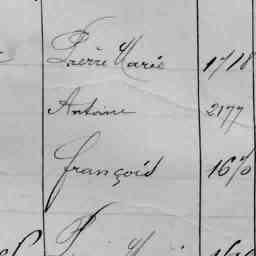 Pierre Marie 1718
Antoine 2177
françois 1670